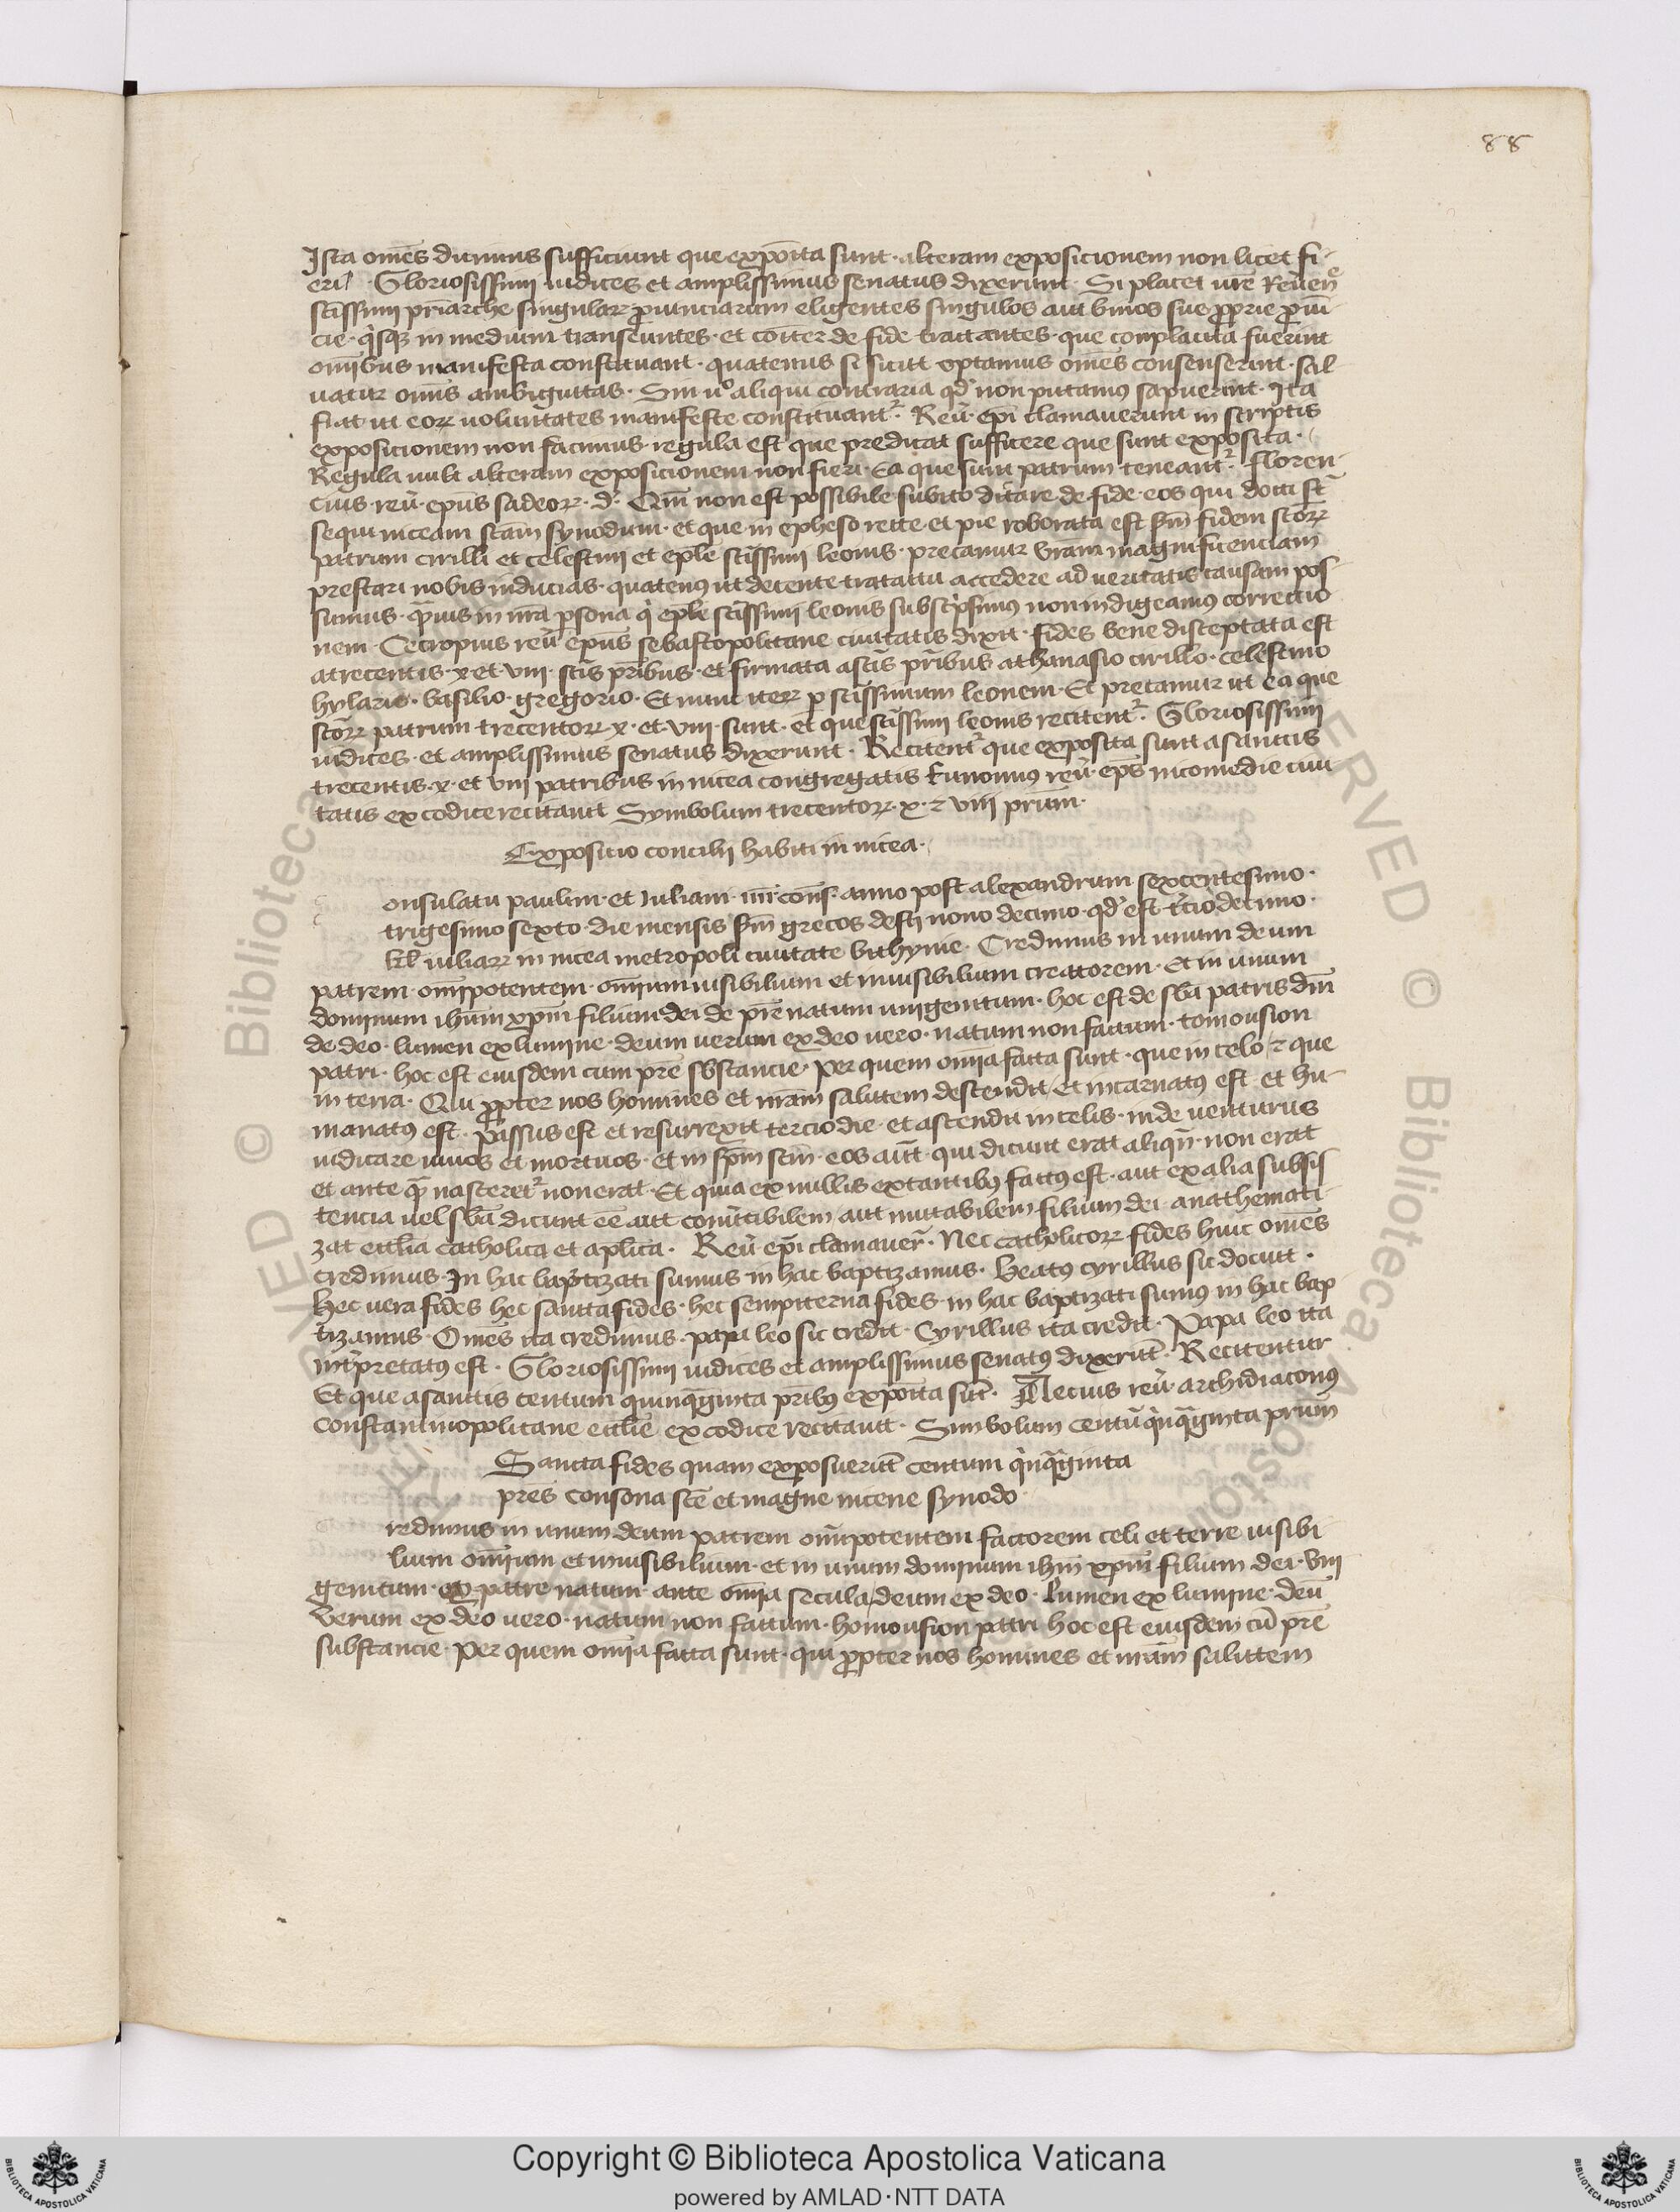 88
Ista om̄es dicimus sufficiunt que expoīta sunt · alteram exposicionem non licet fi-
eri Gloriosissimi iudices et amplissimus senatus dixerunt · Si placet ur̄e Reuen
sctissimi pr̄iarche singulaꝝ prouinciarum eligentes singulos aut binos sue proprie proui
cie · q̇sq; in medium transeuntes · et coīter de fide tractantes · que conplacita fuerint
om̄ibus manifesta constituant · quatenus si sicut optamus om̄es consenserint · sol
uatur omīs ambiguitas · Sin uº aliqui contraria qd̄ non putamus sapuerint · Ita
fiat ut eoꝝ uoluntates manifeste constituantr̄ · Reū · ep̄i clamauerunt in scriptis
exposicionem non facimus · regula est que predicat sufficere que sunt exposita ·
Regula uult alteram exposicionem non fieri · Ea que sunt patrum teneantr̄ · floren
cius reū · ep̄us sadeoꝝ · d̄ · Qm̄ non est possibile subito dictare de fide eos qui docti st̄
sequi niceam sc̄am synodum · et que in epheso recte et pie roborata est scd̄m fidem sc̄oꝝ
patrum cirilli et celestini et ep̄le sc̄issimi leonis · precamur vr̄am magnificenciam
prestari nobis inducias · quatenꝰ ut decente tractatu accedere ad ueritatis causam pos
simus · q̄uis in nr̄a p̄sona q̇ ep̄le sc̄issimi leonis subscpsimꝰ non indigeamꝰ correctio
nem · Cecropius reū ep̄us sebastopolitane ciuitatis dixit · fides bene disceptata est
atrecentis · x · et viii · sc̄is pr̄ibus · et firmata asc̄is pr̄ibus athanasio cirillo · celestino
hylario · basilio · gregorio · Et nunc iteꝝ p sc̄issimum leonem · Et precamur ut ea que
sc̄oꝝ patrum trecentoꝝ x · et viii · sunt · et que sc̄issimi leonis recitentr̄ · Gloriosissimi
iudices · et amplissimus senatus dixerunt · Recitentr̄ que exposita sunt asanctis
trecentis · x · et viii patribus in nicea congregatis Eunomiꝰ reū · ep̄s nicomedie ciui
tatis ex codice recitauit Symbolum trecentoꝝ · x · ⁊ viii pr̄um ·
Exposicio concilij habiti in nicea ·
onsulatu paulini et Iuliani · iiii · cons̄ · anno post alexandrum sexcentesimo ·
trigesimo sexto · die mensis scd̄m grecos desij nono decimo · qd̄ est t̄ciodecimo ·
kl̄ iuliaꝝ in nicea metropoli ciuitate bithynie · Credimus in unum deum
patrem · om̄ipotentem · om̄ium uisibilium et inuisibilium creatorem · Et in unum
dominum ihūm xp̄m filium dei de pr̄e natum unigenitum · hoc est de sb̄a patris dm̄
de deo · lumen ex lumine · deum uerum ex deo uero · natum non factum · tomousion
patri · hoc est eiusdem cum pr̄e sbstancie · per quem om̄ia facta sunt · que in celo ⁊ que
in terra · Qui propter nos homines et nr̄am salutem descendit et incarnatꝰ est et hu-
manatꝰ est · passus est et resurrexit terciodie · et ascendit in celis · inde uenturus
iudicare uiuos et mortuos · et in sp̄m sc̄m · eos aut̄ · qui dicunt erat aliqn̄ · non erat
et ante q̄ nasceretr̄ non erat · Et quia ex nullis extantibꝰ factꝰ est · aut ex alia subsis
tencia uel sb̄a dicunt ēe aut conūtibilem aut mutabilem filium dei anathemati
zat eccl̄ia catholica et ap̄lica · Reū · ep̄i clamauer̄ · Nec catholicoꝝ fides huic om̄es
credimus · In hac baptizati sumus in hac baptizamus · Beatꝰ cyrillus sic docuit ·
Hec uera fides hec sancta fides · hec sempiterna fides · in hac baptizati sumꝰ in hac bap
tizamus · Om̄es ita credimus · papa leo sic credit · Cyrillus ita credit · Papa leo ita
int̄pretatꝰ est · Gloriosissimi iudices et amplissimus senatꝰ dixerūt · Recitentur
Et que asanctis centum quinq̄ginta pr̄ibꝰ expoīta sūt · Aecius reū · archidiaconꝰ
Constantinopolitane eccl̄ie ex codice recitauit · Simbolum centū q̇nq̄ginta pr̄um
Sancta fides quam exposuerūt centum q̇nq̄ginta
pr̄es consona sc̄e et magne nicene synodo
redimus in unum deum patrem om̄ipotentem factorem celi et terre uisibi
lium om̄ium et inuisibilium · et in unum dominum ihm̄ xp̄m filium dei · vni
genitum · ex patre natum · ante om̄ia secula deum ex deo · Lumen ex lumine · deū
Verum ex deo uero · natum non factum · homousion patri hoc est eiusdem cū pr̄e
substancie · Per quem om̄ia facta sunt · qui propter nos homines et nr̄am salutem
Copyright © Biblioteca Apostolica Vaticana
powered by AMLAD·NTT DATA